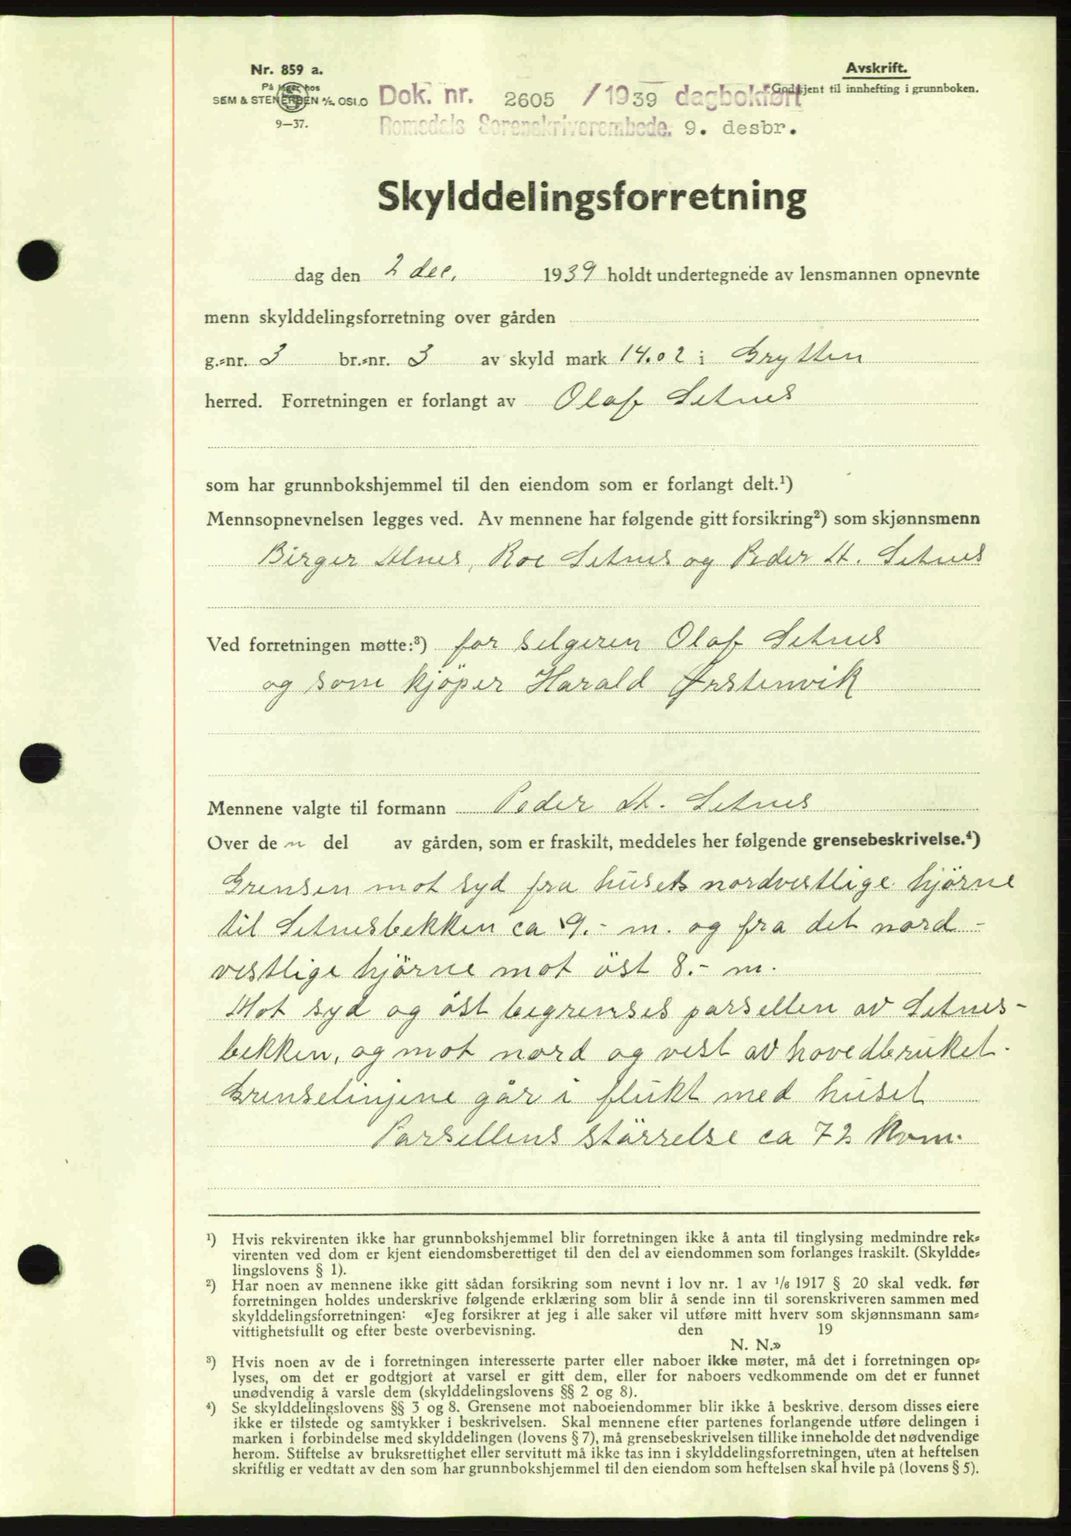 Nr. 859 a.
På lager hos
SEM & STENERSEN A/S. OSLO
9—37.
Avskrift.
Godkjent til innhefting i grunnboken.
Dok. nr. 2605 /1939 dagbokført
Romsdals Sorenskriverembede. 9. desbr.
Skylddelingsforretning
dag den 2 dec. 1939 holdt undertegnede av lensmannen opnevnte
menn skylddelingsforretning over gården
g.-nr. 3 br.-nr. 3 av skyld mark 14.02 i Grytten
herred. Forretningen er forlangt av Olaf Setnes
som har grunnbokshjemmel til den eiendom som er forlangt delt.¹)
Mennsopnevnelsen legges ved. Av mennene har følgende gitt forsikring²) som skjønnsmenn
Birger Alnes, Roe Setnes og Peder A. Setnes
Ved forretningen møtte:³) for selgeren Olaf Setnes
og som kjöper Harald Ørstenvik
Mennene valgte til formann Peder A. Setnes
Over de n del av gården, som er fraskilt, meddeles her følgende grensebeskrivelse.⁴)
Grensen mot syd fra husets nordvestlige hjörne
til Setnesbekken ca 9.- m. og fra det nord-
vestlige hjörne mot öst 8.- m.
Mot syd og öst begrenses parsellen av Setnes-
bekken, og mot nord og vest av hovedbruket.
Grenselinjene går i flukt med huset
Parsellens störrelse ca 72 kvm.
¹) Hvis rekvirenten ikke har grunnbokshjemmel blir forretningen ikke å anta til tinglysing medmindre rek-
virenten ved dom er kjent eiendomsberettiget til den del av eiendommen som forlanges fraskilt. (Skyldde-
lingslovens § 1).
²) Har noen av mennene ikke gitt sådan forsikring som nevnt i lov nr. 1 av ¹/₆ 1917 § 20 skal vedk. før
forretningen holdes underskrive følgende erklæring som blir å sende inn til sorenskriveren sammen med
skylddelingsforretningen: «Jeg forsikrer at jeg i alle saker vil utføre mitt hverv som skjønnsmann sam-
vittighetsfullt og efter beste overbevisning. den 19
N. N.»
³) Hvis noen av de i forretningen interesserte parter eller naboer ikke møter, må det i forretningen op-
lyses, om det er godtgjort at varsel er gitt dem, eller for naboers vedkommende om det er funnet
unødvendig å varsle dem (skylddelingslovens §§ 2 og 8).
⁴) Se skylddelingslovens §§ 3 og 8. Grensene mot naboeiendommer blir ikke å beskrive, dersom disses eiere
ikke er tilstede og samtykker i beskrivelsen. Skal mennene efter partenes forlangende utføre delingen i
marken i forbindelse med skylddelingen (lovens § 7), må grensebeskrivelsen tillike inneholde det nødvendige
herom. Stiftelse av bruksrettighet eller servitutt må ikke tas inn i skylddelingsforretningen, uten at heftelsen
skriftlig er vedtatt av den som har grunnbokshjemmel til den eiendom som heftelsen skal hvile på (lovens § 5).